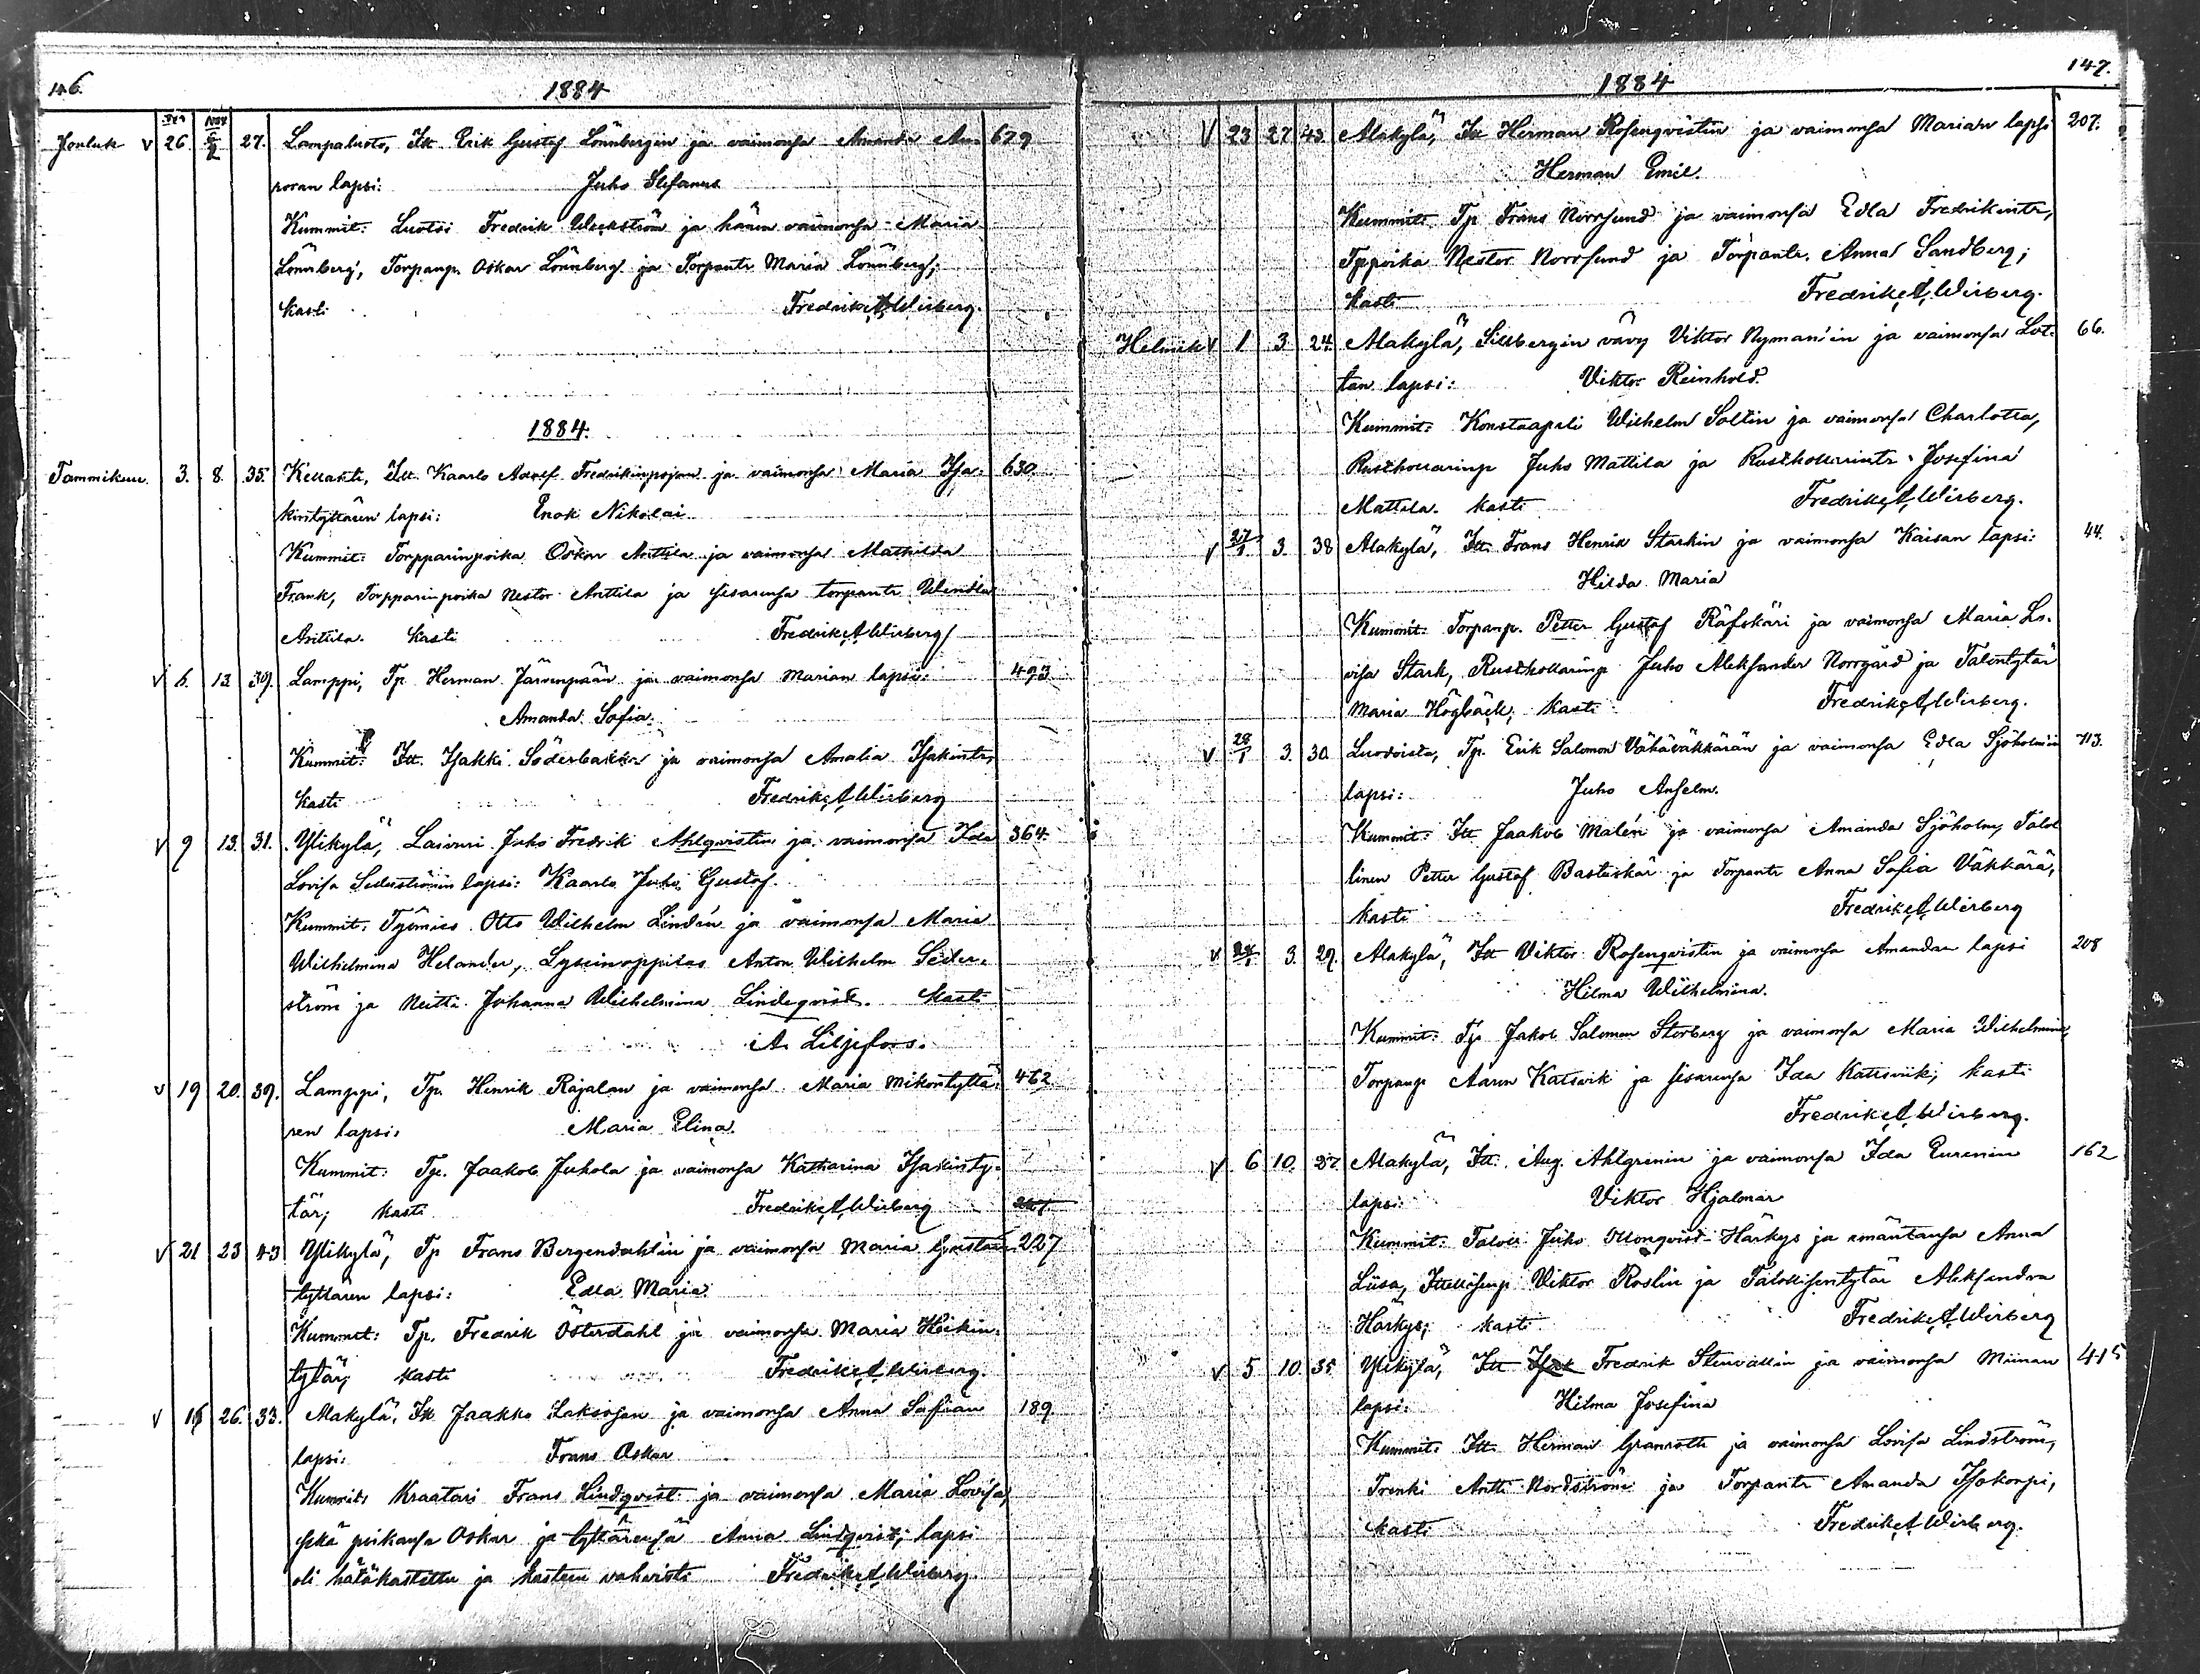 146.
1884
Jouluk v 26 6/2 27. Lampaluoto, Itt Erik Gustaf Lönnbergin ja vaimonsa Amanda Au- 629
roran lapsi: Juho Stefanus
Kummit: Luotsi Fredrik Weckström ja hänen vaimonsa Maria
Lönnberg, Torpanp. Oskar Lönnberg ja Torpantr Maria Lönnberg;
kasti Fredrik A Wirberg.
1884.
Tammikuu. 3. 8. 35. Kellahti, Itt. Kaarlo Adolf Fredrikinpojan ja vaimonsa Maria Isa- 630.
kintyttären lapsi: Enok Nikolai
Kummit: Torpparinpoika Oskar Anttila ja vaimonsa Mathilda
Frank, Torpparinpoika Nestor Anttila ja sisarensa torpantr Wendla
Anttila. kasti Fredrik A Wirberg
v 6. 13 39. Lamppi, Tp. Herman Järvenpään ja vaimonsa Marian lapsi: 493
Amanda Sofia.
Kummit: Itt. Isakki Söderbacka ja vaimonsa Amalia Isakintr,
kasti Fredrik A Wirberg
v 9 13. 31. Ylikylä, Laivuri Juho Fredrik Ahlqvistin ja vaimonsa Ida 364.
Lovisa Sederströmin lapsi: Kaarlo Juho Gustaf.
Kummit: Työmies Otto Wilhelm Lindén ja vaimonsa Maria
Wilhelmina Helander, Lyseinoppilas Anton Wilhelm Seder-
ström ja Neitti Johanna Wilhelmina Lindeqvist. kasti
A. Liljefors.
v 19 20. 39. Lamppi, Tp. Henrik Rajalan ja vaimonsa Maria Mikontyttä- 462
ren lapsi: Maria Elina.
Kummit: Tp. Jaakob Juhola ja vaimonsa Katharina Isakinty-
tär; kasti Fredrik A Wirberg
v 21 23 43 Ylikylä, Tp Frans Bergendahlin ja vaimonsa Maria Gustaan- 227
tyttären lapsi: Edla Maria.
Kummit: Tp. Fredrik Österdahl ja vaimonsa Maria Heikin-
tytär; kasti Fredrik A Wirberg.
v 16 26. 33. Alakylä, Itt Jaakko Laksosen ja vaimonsa Anna Sofian 189.
lapsi: Frans Oskar
Kummit: Kraatari Frans Lindqvist ja vaimonsa Maria Lovisa,
sekä poikansa Oskar ja tyttärensä Anna Lindqvist; lapsi
oli hätäkastettu ja kasteen vahvisti Fredrik A Wirberg.
147.
1884
V 23 27 43 Alakylä, Itt Herman Rosenqvistin ja vaimonsa Marian lapsi 207.
Herman Emil.
Kummit: Tp Frans Norrsund ja vaimonsa Edla Fredrikintr,
Tppoika Nestor Norrsund ja Torpantr. Anna Sandberg;
kasti Fredrik A Wirberg.
Helmik v 1 3 24. Alakylä, Sillbergin vävy Viktor Nyman'in ja vaimonsa Lot- 66.
tan lapsi: Viktor Reinhold.
Kummit: Konstaapeli Wilhelm Saltin ja vaimonsa Charlotta,
Rusthollarinp Juho Mattila ja Rusthollarintr Josefina
Mattila. kasti Fredrik A Wirberg.
v 27/1 3. 38 Alakylä, Itt. Frans Henrik Starkin ja vaimonsa Kaisan lapsi: 44.
Hilda Maria
Kummit: Torpanp. Petter Gustaf Räfskäri ja vaimonsa Maria Lo-
visa Stark, Rusthollarinp Juho Aleksander Norrgård ja Talontytär
Maria Högback; kasti Fredrik A Wirberg.
v 28/1 3. 30. Luodoista, Tp. Erik Salomon Vähäväkkärän ja vaimonsa Edla Sjöholmin 713.
lapsi: Juho Anselm.
Kummit: Itt Jaakob Malén ja vaimonsa Amanda Sjöholm, Talol-
linen Petter Gustaf Bastuskär ja Torpantr Anna Sofia Väkkärä,
kasti Fredrik A Wirberg
v 3. 29. Alakylä, Itt Viktor Rosenqvistin ja vaimonsa Amandan lapsi 208
Hilma Wilhelmina.
Kummit: Tp Jakob Salomon Storberg ja vaimonsa Maria Wilhelmina,
Torpanp Aaron Katsvik ja sisarensa Ida Kattsviik; kasti
Fredrik A Wirberg.
v 6 10. 27. Alakylä, Itt. Aug. Ahlgrenin ja vaimonsa Ida Eurenin 162
lapsi: Viktor Hjalmar
Kummit: Talois Juho Ollonqvist Härkys ja emäntänsä Anna
Liisa, Ittellisenp Viktor Roslin ja Talollisentytär Aleksandra
Härkys; kasti Fredrik A Wirberg
v 5 10. 35 Ylikylä, Itt Isak Fredrik Stenvallin ja vaimonsa Miinan 415
lapsi: Hilma Josefina
Kummit: Itt. Herman Granroth ja vaimonsa Lovisa Lindström,
Trenki Antti Nordström ja Torpantr Amanda Isokorpi,
kasti Fredrik A Wirberg.